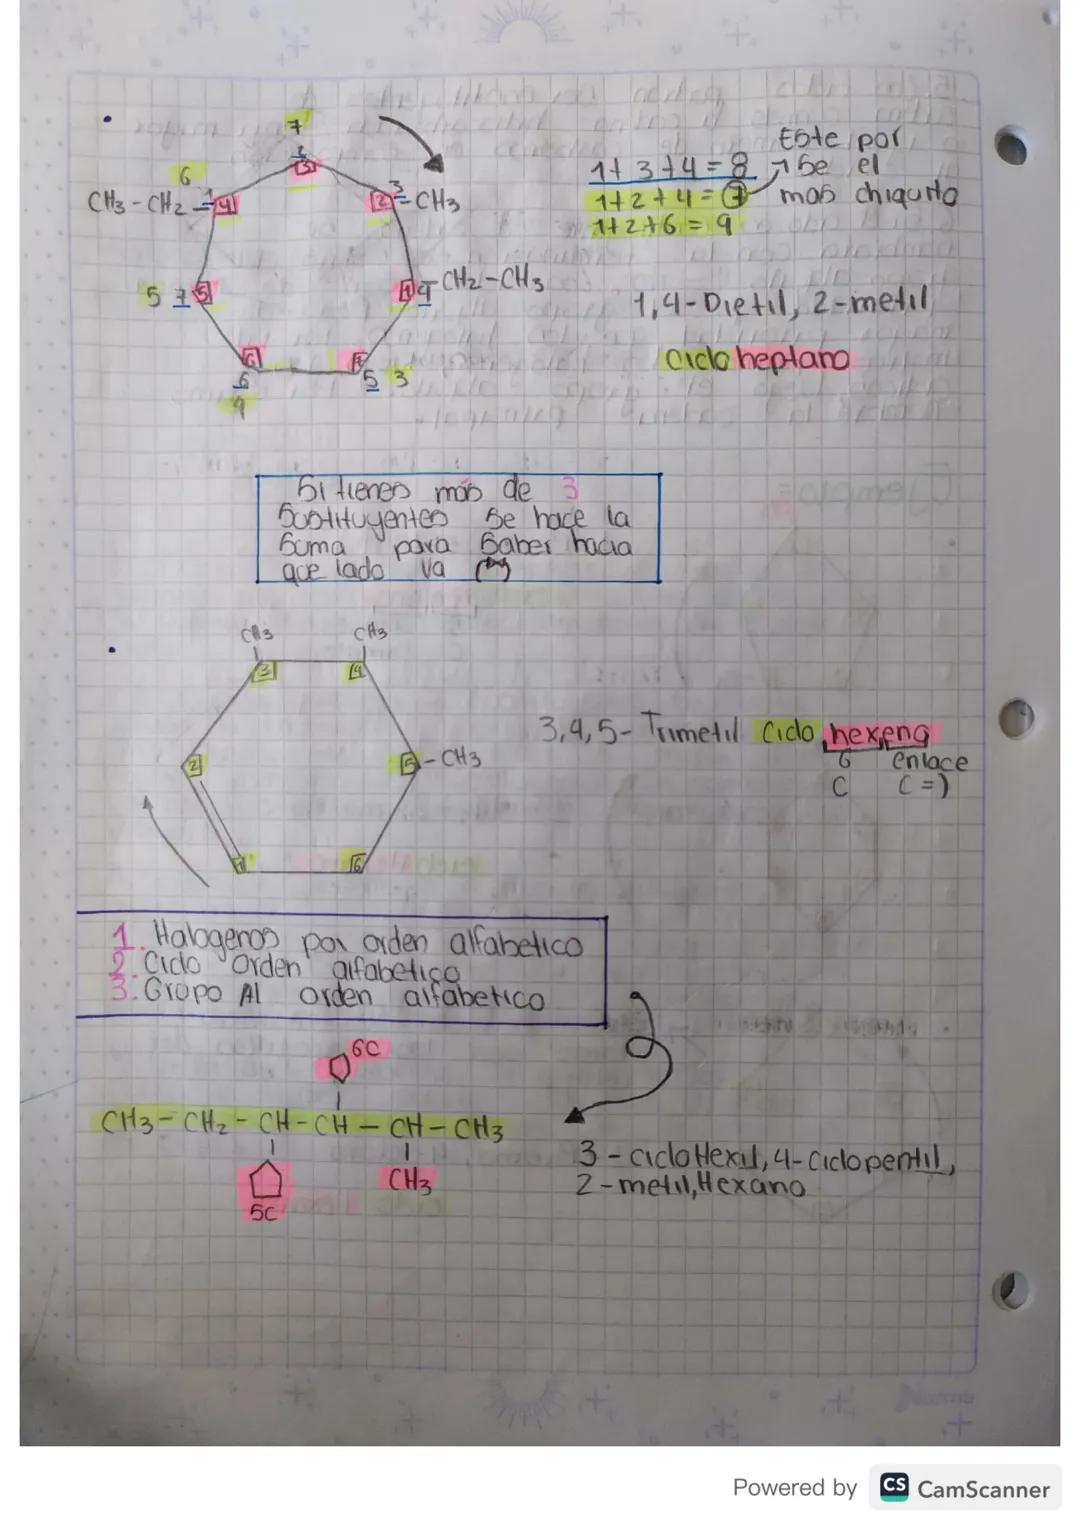 7
1
3
6
CH3-CH2-
1
4
3
2
-CH3
Este por
1+3+4=8
se el
1+2+4=7
mas chiquito
1+2+6=9
5
7
5
1
4
-CH2-CH3
1,4-Dietil, 2-metil
Ciclo heptano
6
7
6
5
3
4
Si tienes más de 3
Sustituyentes Se hace la
Suma para Saber hacia
que lado va
CH3
CH3
3
4
2
5
-CH3
1
6
3,4,5-Trimetil Ciclo hexeno
6
enlace
C
(=)
1. Halogenos por orden alfabetico
2. Ciclo Orden alfabetico
3. Grupo Al orden alfabetico
6C
CH3-CH2-CH-CH-CH-CH3
CH3
5C
3-cicloHexil, 4-Ciclopentil,
2-metil, Hexano
Powered by CS CamScanner